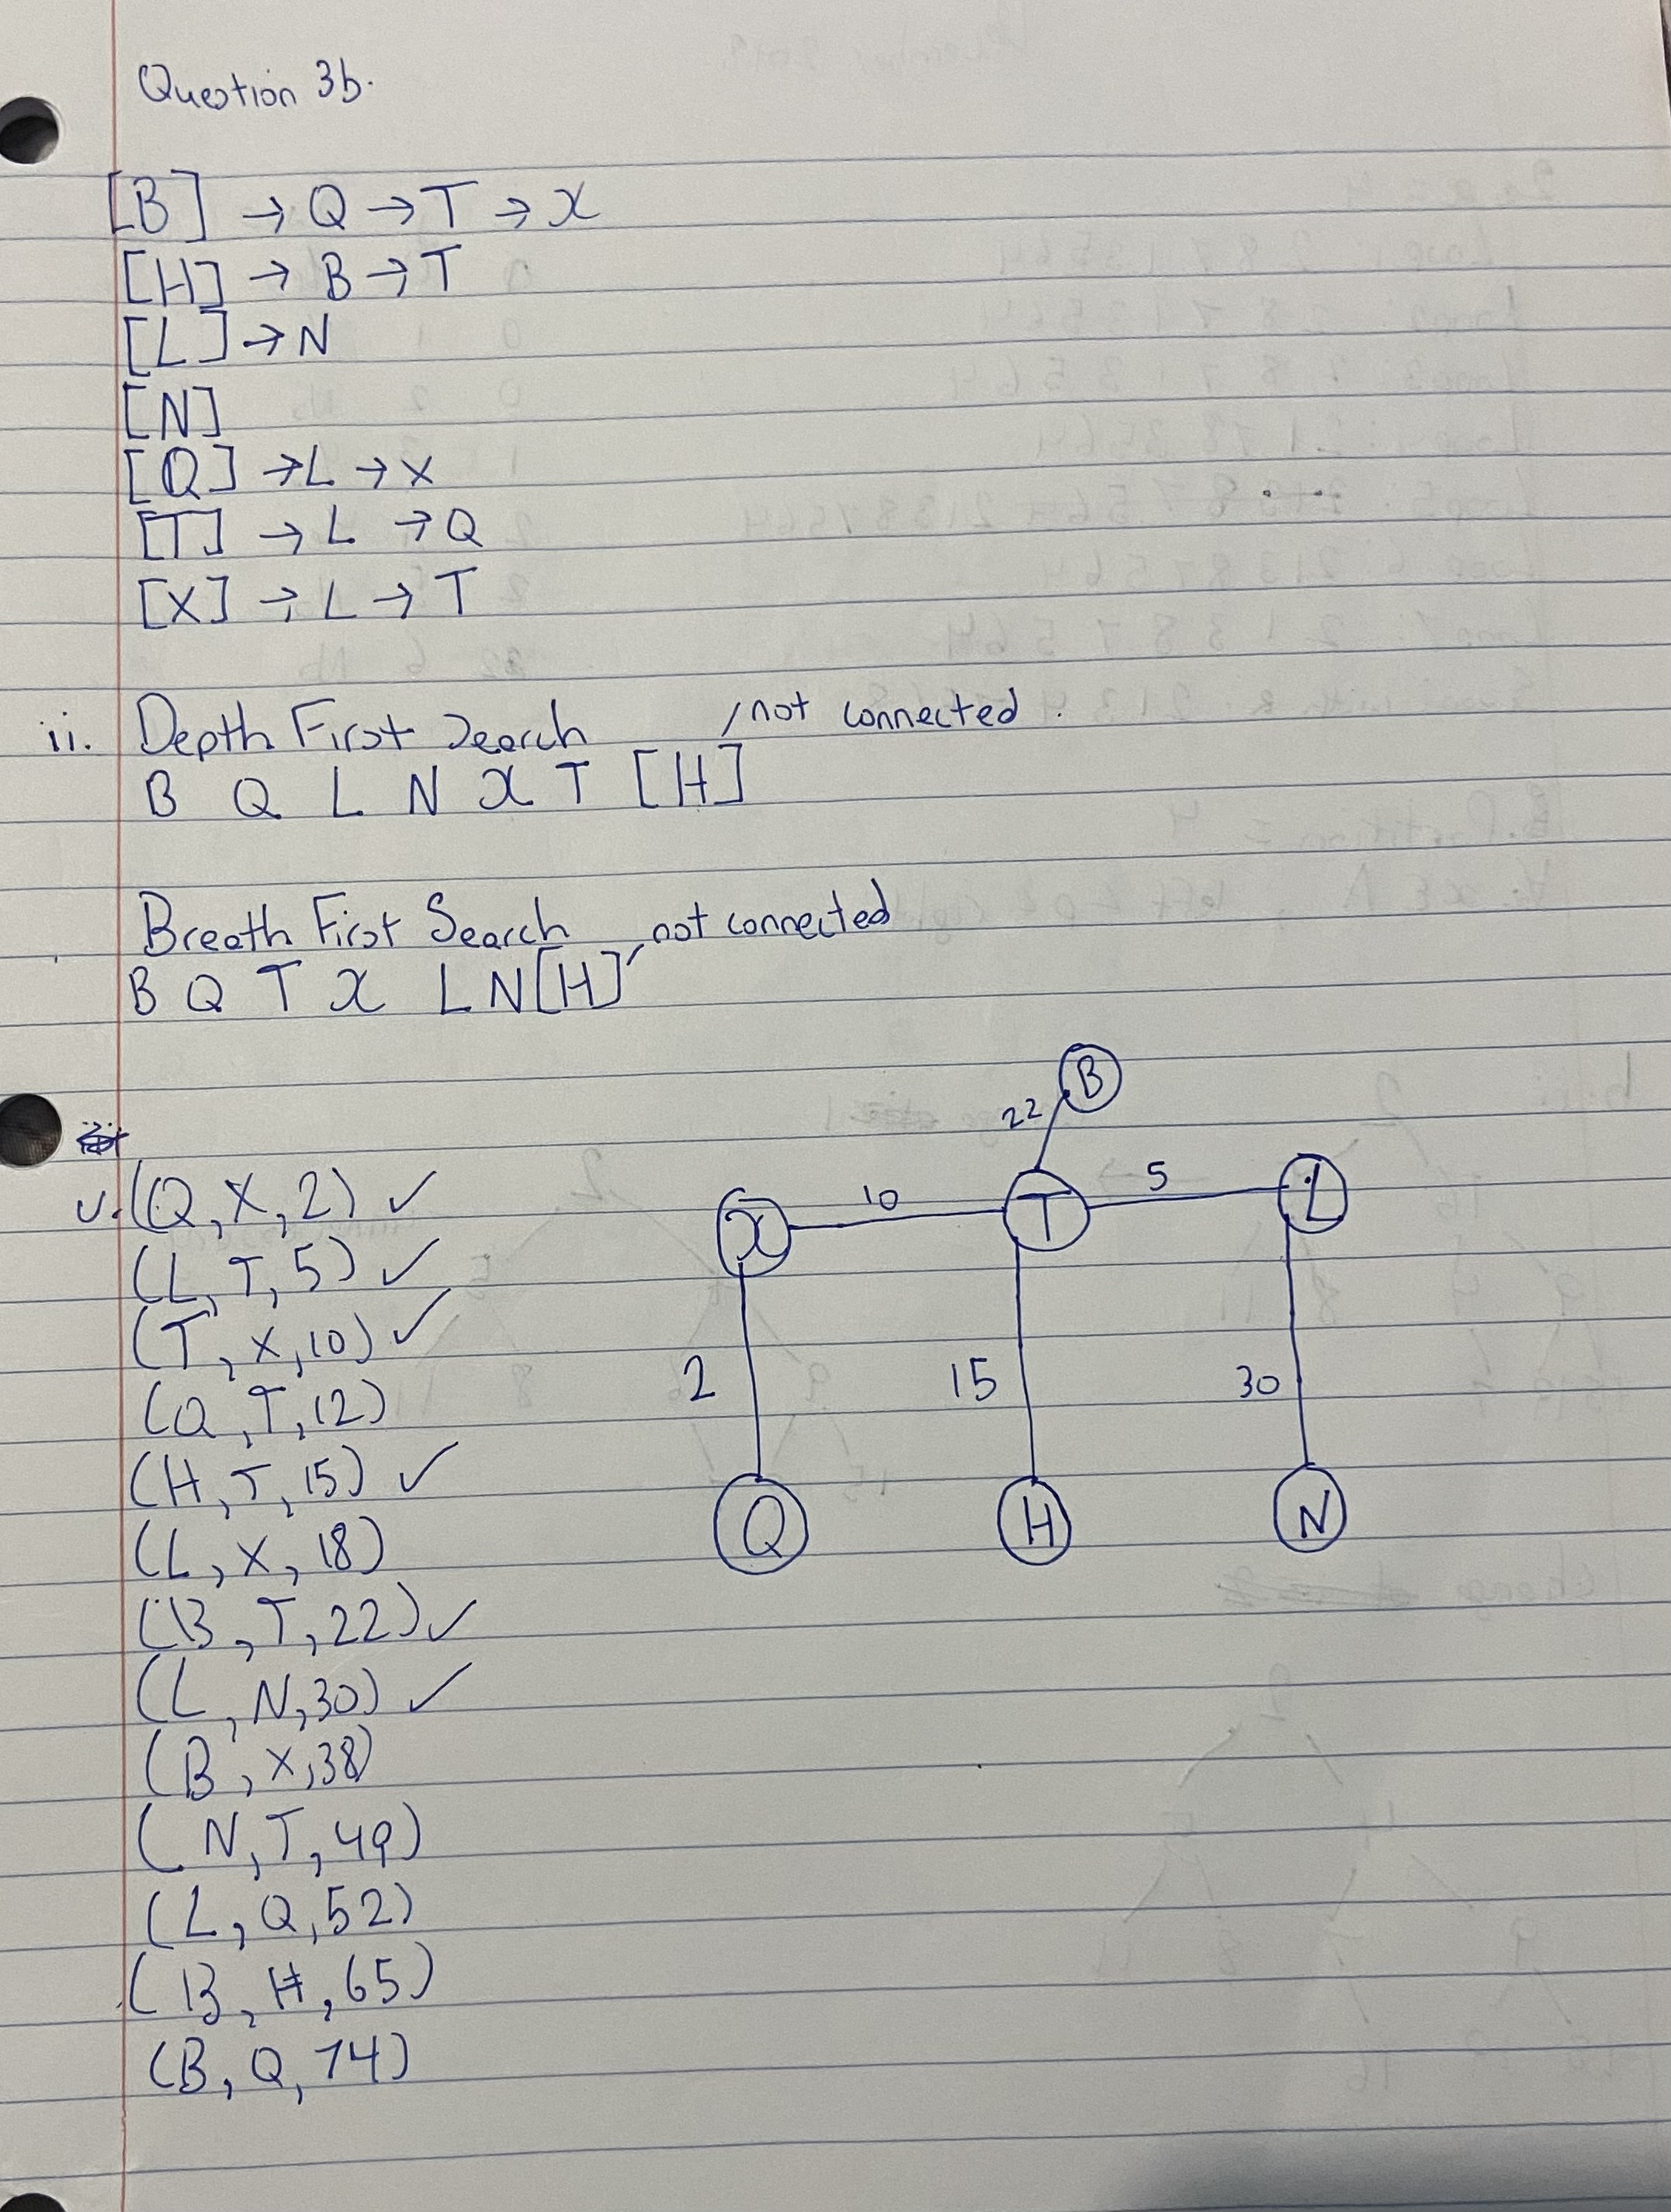 Question 3b.
[B] → Q → T → X
[H] → B → T
[L] → N
[N]
[Q] → L → X
[T] → L → Q
[X] → L → T
ii. Depth First Search / not connected.
B Q L N X T [H]
Breath First Search / not connected
B Q T X L N [H]
v. (Q, X, 2) ✓
(L, T, 5) ✓
(T, X, 10) ✓
(Q, T, 12)
(H, T, 15) ✓
(L, X, 18)
(B, T, 22) ✓
(L, N, 30) ✓
(B, X, 38)
(N, T, 49)
(L, Q, 52)
(B, H, 65)
(B, Q, 74)
B
22
X 10 T 5 L
2 15 30
Q H N